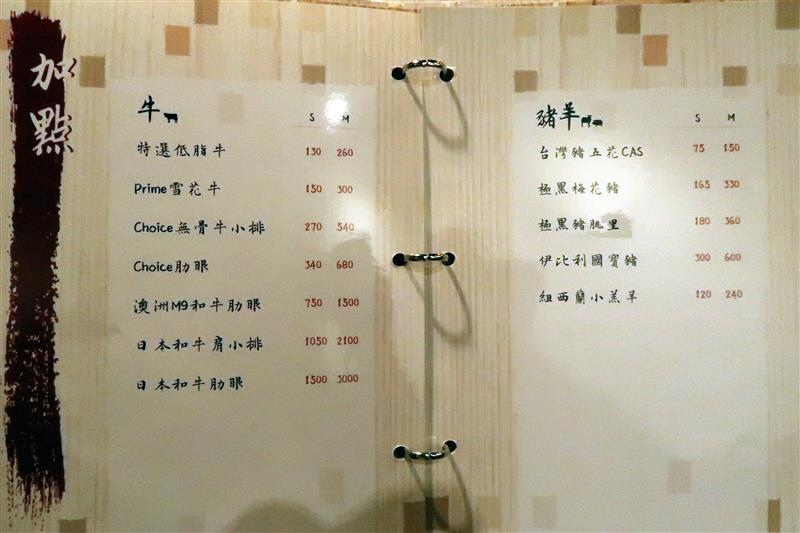 加點
牛 S M
特選低脂牛 130 260
Prime雪花牛 150 300
Choice無骨牛小排 270 540
Choice肋眼 340 680
澳洲M9和牛肋眼 750 1500
日本和牛肩小排 1050 2100
日本和牛肋眼 1500 3000
豬羊 S M
台灣豬五花CAS 75 150
極黑梅花豬 165 330
極黑豬肌里 180 360
伊比利國寶豬 300 600
紐西蘭小羔羊 120 240